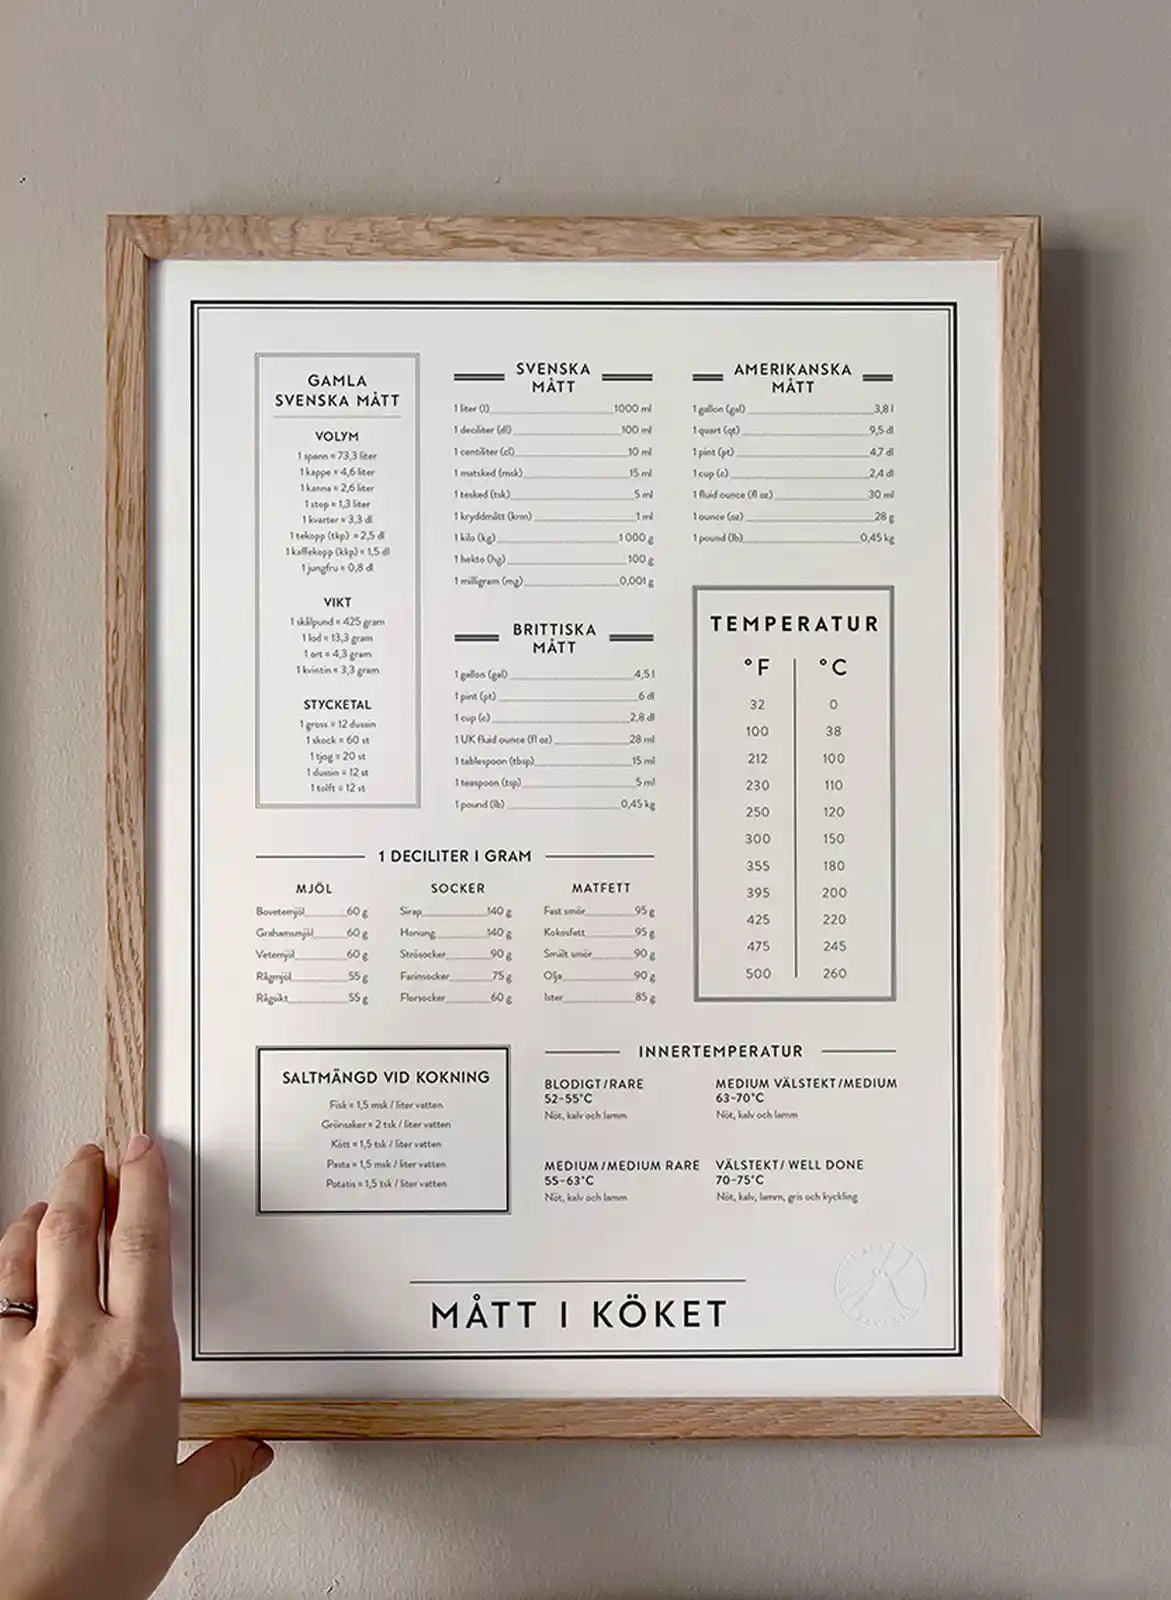 GAMLA
SVENSKA MÅTT
VOLYM
1 spann = 73,3 liter
1 kappe = 4,6 liter
1 kanna = 2,6 liter
1 stop = 1,3 liter
1 kvarter = 3,3 dl
1 tekopp (tkp) = 2,5 dl
1 kaffekopp (kkp) = 1,5 dl
1 jungfru = 0,8 dl
VIKT
1 skålpund = 425 gram
1 lod = 13,3 gram
1 ort = 4,3 gram
1 kvintin = 3,3 gram
STYCKETAL
1 gross = 12 dussin
1 skock = 60 st
1 tjog = 20 st
1 dussin = 12 st
1 tolft = 12 st
SVENSKA
MÅTT
1 liter (l) 1000 ml
1 deciliter (dl) 100 ml
1 centiliter (cl) 10 ml
1 matsked (msk) 15 ml
1 tesked (tsk) 5 ml
1 kryddmått (krm) 1 ml
1 kilo (kg) 1 000 g
1 hekto (hg) 100 g
1 milligram (mg) 0,001 g
BRITTISKA
MÅTT
1 gallon (gal) 4,5 l
1 pint (pt) 6 dl
1 cup (c) 2,8 dl
1 UK fluid ounce (fl oz) 28 ml
1 tablespoon (tbsp) 15 ml
1 teaspoon (tsp) 5 ml
1 pound (lb) 0,45 kg
AMERIKANSKA
MÅTT
1 gallon (gal) 3,8 l
1 quart (qt) 9,5 dl
1 pint (pt) 4,7 dl
1 cup (c) 2,4 dl
1 fluid ounce (fl oz) 30 ml
1 ounce (oz) 28 g
1 pound (lb) 0,45 kg
TEMPERATUR
°F °C
32 0
100 38
212 100
230 110
250 120
300 150
355 180
395 200
425 220
475 245
500 260
1 DECILITER I GRAM
MJÖL
Bovetemjöl 60 g
Grahamsmjöl 60 g
Vetemjöl 60 g
Rågmjöl 55 g
Rågsikt 55 g
SOCKER
Sirap 140 g
Honung 140 g
Strösocker 90 g
Farinsocker 75 g
Florsocker 60 g
MATFETT
Fast smör 95 g
Kokosfett 95 g
Smält smör 90 g
Olja 90 g
Ister 85 g
SALTMÄNGD VID KOKNING
Fisk = 1,5 msk / liter vatten
Grönsaker = 2 tsk / liter vatten
Kött = 1,5 tsk / liter vatten
Pasta = 1,5 msk / liter vatten
Potatis = 1,5 tsk / liter vatten
INNERTEMPERATUR
BLODIGT/RARE
52-55°C
Nöt, kalv och lamm
MEDIUM VÄLSTEKT/MEDIUM
63-70°C
Nöt, kalv och lamm
MEDIUM/MEDIUM RARE
55-63°C
Nöt, kalv och lamm
VÄLSTEKT/WELL DONE
70-75°C
Nöt, kalv, lamm, gris och kyckling
MÅTT I KÖKET